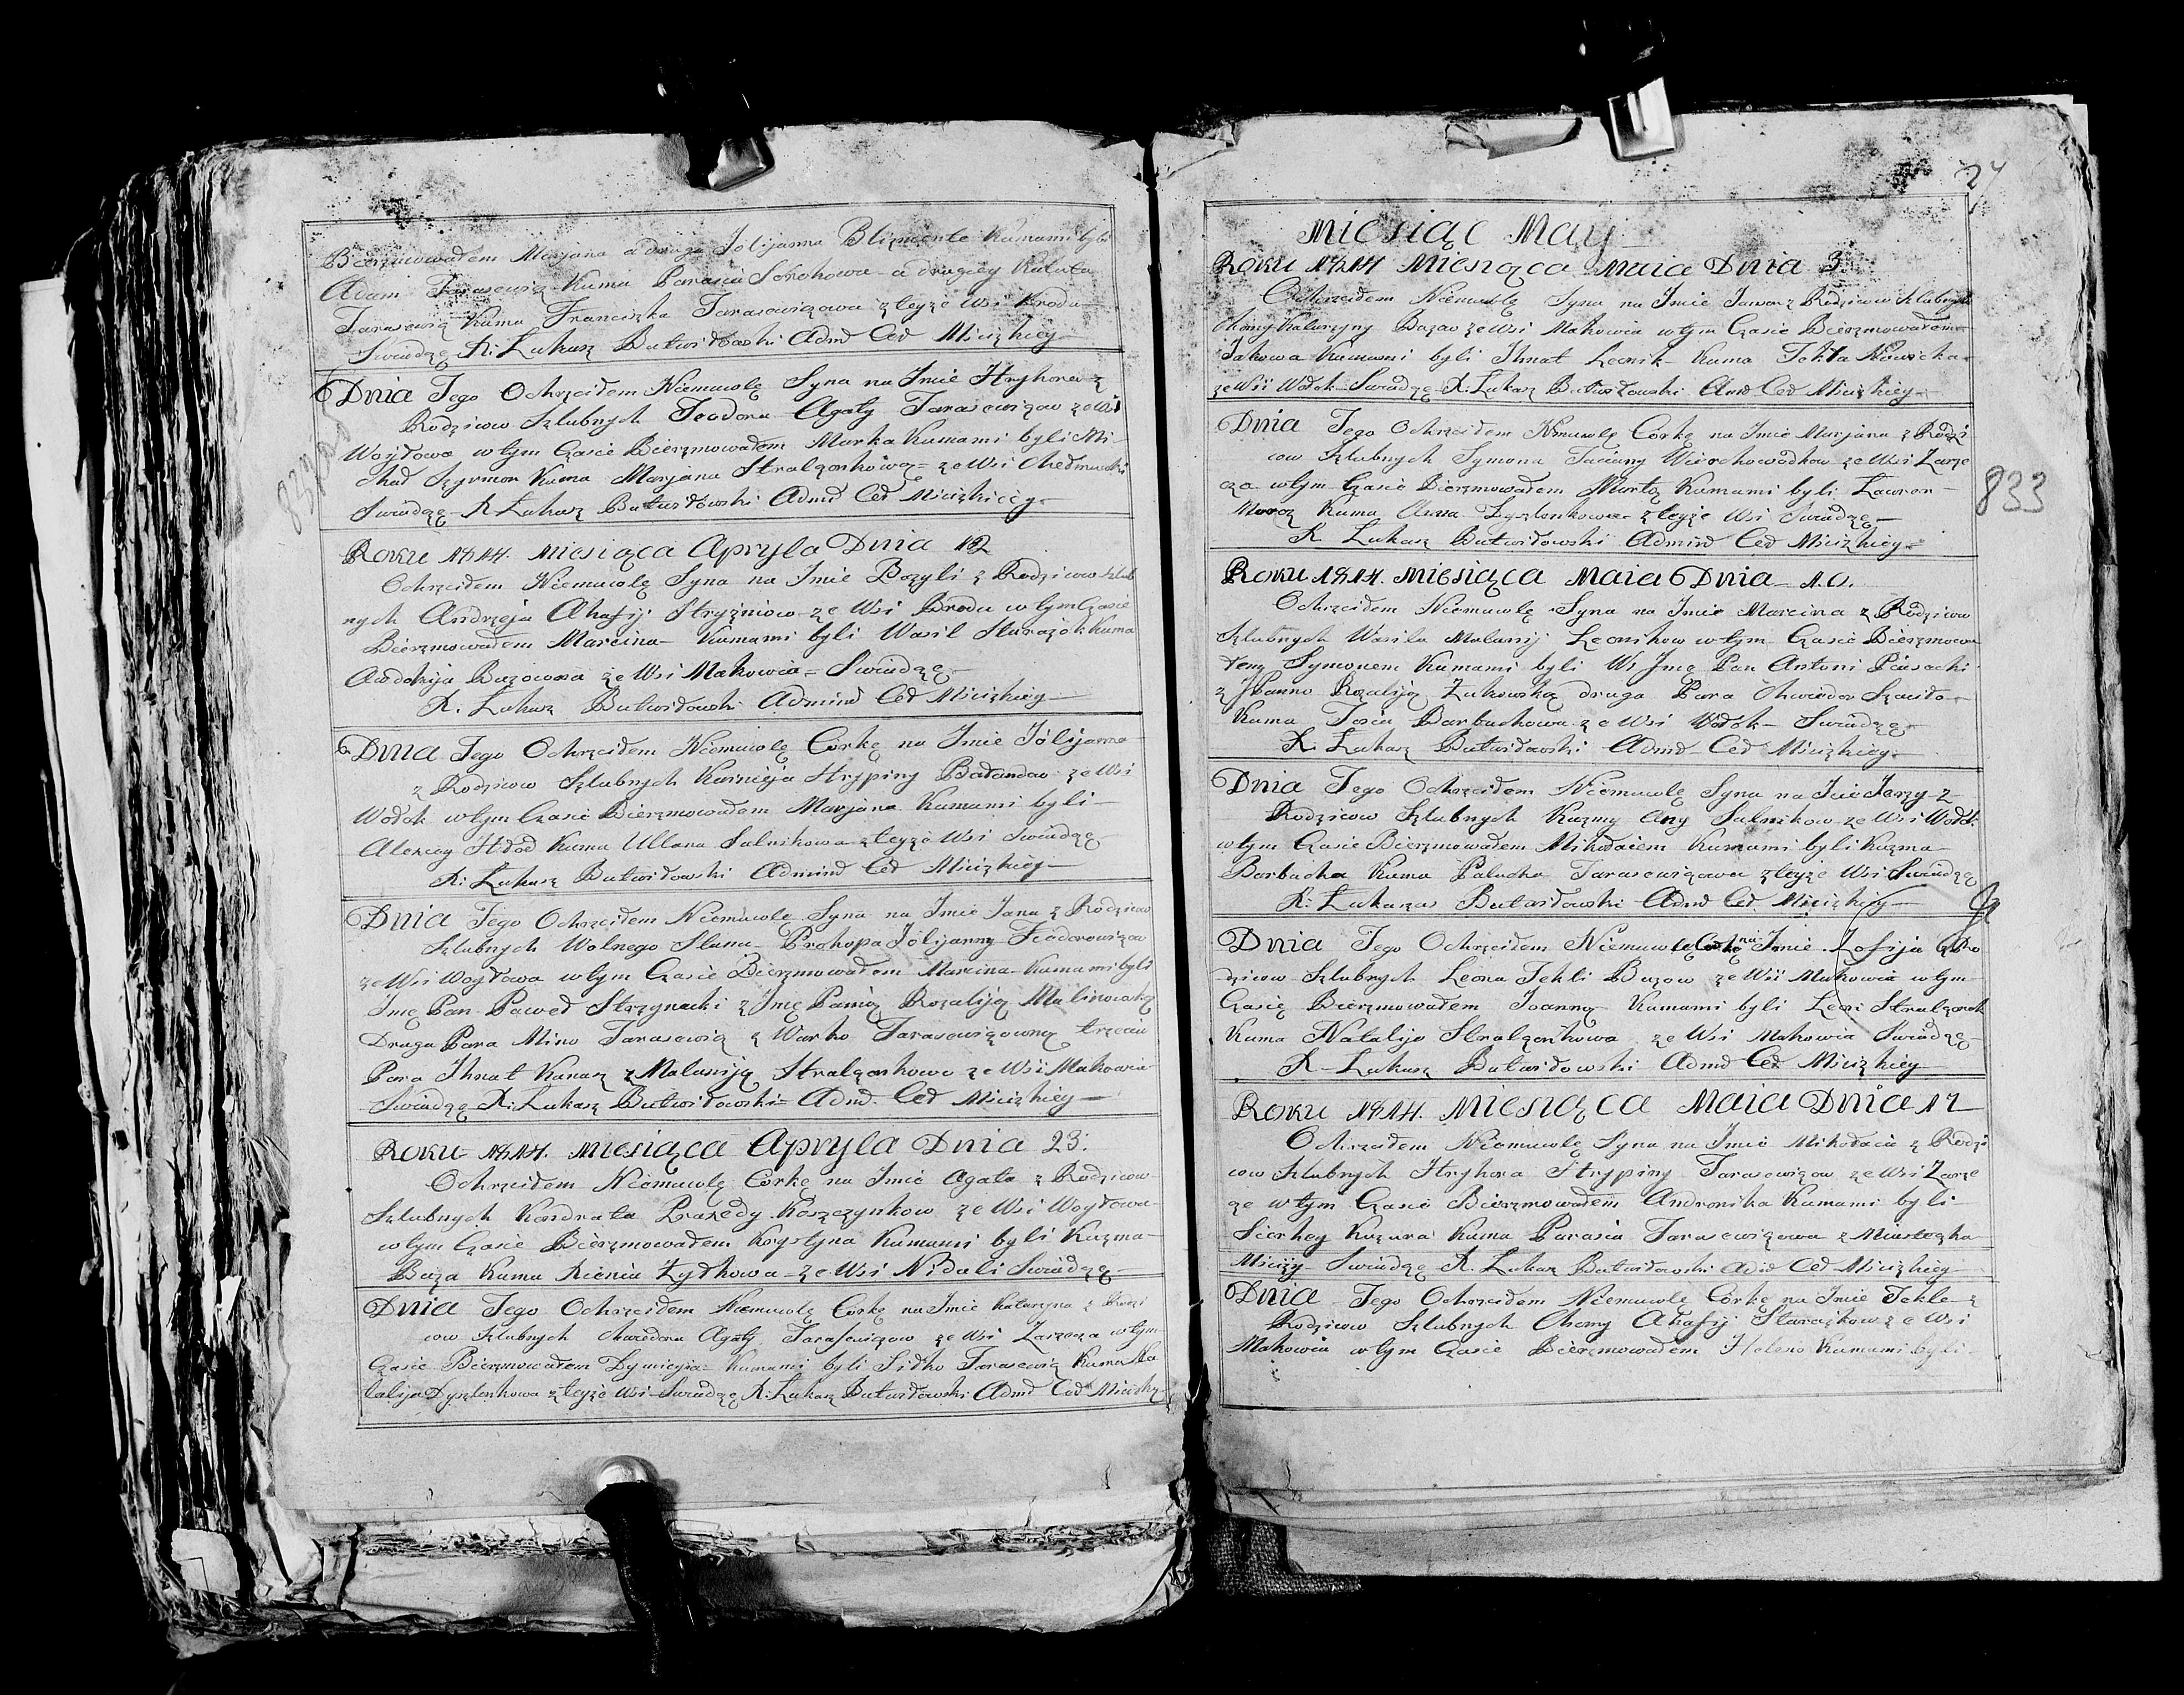 Bierzmowałem Marjana a druga Jolijanna Blizniente Kumami byli
Adam Tarasewiz Kuma Parasia Sorohowa a drugiey Kuluta
Tarasewiz Kuma Franciszka Tarasewizowa z teyze Wsi Brodu
Swiadzę X: Łukasz Butwiłowski Admł Ceł Mścizkiey
832
Dnia Tego Ochrzciłem Niemuwlę Syna na Jmie Hryhora z
Rodzicow Szlubnych Teodora Agaty Tarasewizow ze Wsi
Woytowa w tym Czasie Bierzmowałem Marka Kumami byli Mi
Szymon Kuma Marjana Stralzonkowa ze Wsi
Swiadzę X Łukasz Butwiłowski Admł Ceł Mścizkiey
Roku 1814. Miesiąca Apryla Dnia 12
Ochrzciłem Niemuwlę Syna na Jmie Bazyli z Rodzicow Szlub
nych Andrzeja Ahafij Stryzniow ze Wsi Brodu w tym Czasie
Bierzmowałem Marcina Kumami byli Wasil Starazok Kuma
Audokija Buzowna ze Wsi Makowia Swiadzę
X. Łukasz Butwiłowski Adminł Ceł Mścizkiey
Dnia Tego Ochrzciłem Niemuwlę Córkę na Jmie Jólijanna
z Rodzicow Szlubnych Karnieja Hrypiny Bałandow ze Wsi
Wołok w tym Czasie Bierzmowałem Marjana Kumami byli
Alexey Hłód Kuma Ullana Salnikowa z teyze Wsi Swiadzę
X: Łukasz Butwiłowski Adminł Ceł Mścizkiey
Dnia Tego Ochrzciłem Niemuwlę Syna na Jmie Jana z Rodzicow
Szlubnych Wolnego Stanu Prokopa Jólijanny Fiodorowizow
ze Wsi Woytowa w tym Czasie Bierzmowałem Marcina Kumami byli
Jmę Pan Paweł Strzynacki z Jmę Panią Rozaliją Malinowską
Druga Para Mino Tarasewiz z Warko Tarasewizowną trzecia
Para Jhnat Kanasz z Malaniją Stralzonkowo ze Wsi Makowia
Swiadzę X: Łukasz Butwiłowski Admł. Ceł Mścizkiey
Roku 1814. Miesiąca Apryla Dnia 23:
Ochrzciłem Niemuwlę Corkę na Jmie Agata z Rodzicow
Szlubnych Kondrata Praxedy Koszczynkow ze Wsi Woytowa
w tym Czasie Bierzmowałem Krystyna Kumami byli Kuzma
Buza Kuma Xienia Łytkowa ze Wsi Nidali Swiadzę
Dnia Tego Ochrzciłem Niemuwlę Corkę na Jmie Katarzyna z Rodzi
cow Szlubnych Chwedora Agaty Tarasewizow ze Wsi Zarzcza w tym
Czasie Bierzmowałem Dymicyja Kumami byli Sidko Tarasewiz Kuma Na
talija Dyszlonkowa z teyze Wsi Swiadzę X: Łukasz Butwiłowski Admł Ceł Mścizky
27
Miesiąc May
Roku 1814 Miesiąca Maia Dnia 3.
Ochrzciłem Niemuwlę Syna na Jmie Jawor z Rodzicow Szlubnych
Chomy Katarzyny Buzow ze Wsi Makowia w tym Czasie Bierzmowałem
Jakowa Kumami byli Jhnat Leonik Kuma Tekla Nowicka
ze Wsi Wołok Swiadzę X: Łukasz Butwiłowski Amł Ceł Mścizkiey
Dnia Tego Ochrzciłem Niemuwlę Corkę na Jmie Marjana z Rodzi
cow Szlubnych Symona Taciany Wierchowódkow ze Wsi Zarze
cza w tym Czasie Bierzmowałem Martę Kumami byli Lawron
Moroz Kuma Anna Dyszlonkowa z teyze Wsi Swiadzę
X. Łukasz Butwiłowski Adminł Ceł Mścizkiey
833
Roku 1814. Miesiąca Maia Dnia 10.
Ochrzciłem Niemuwlę Syna na Jmie Marcina z Rodzicow
Szlubnych Wasila Malanij Leonikow w tym Czasie Bierzmowa
łem Symonem Kumami byli Ws Jmę Pan Antoni Piasecki
z JPanno Rozaliją Zukowską druga Para Chwiedor Szcuito
Kuma Zosia Barbachowa ze Wsi Wołok Swiadzę
X: Łukasz Butwiłowski Admł Ceł Mścizkiey
Dnia Tego Ochrzciłem Niemuwlę Syna na Jmie Jerzy z
Rodzicow Szlubnych Kuzmy Any Salnikow ze Wsi Wołok
w tym Czasie Bierzmowałem Mikołaiem Kumami byli Kuzma
Barbacha Kuma Palucha Tarasewizowa z teyze Wsi Swiadzę
X: Łukasz Butwiłowski Admł Ceł Mścizkiey
Dnia Tego Ochrzciłem Niemuwlę Corkę na Jmie Zofija z Ro
dzicow Szlubnych Leona Tekli Buzow ze Wsi Makowia w tym
Czasie Bierzmowałem Joanną Kumami byli Leon Stralzonok
Kuma Natalija Stralzonkowa ze Wsi Makowia Swiadzę
X Łukasz Butwiłowski Admł Ceł Mścizkiey
Roku 1814. Miesiąca Maia Dnia 17
Ochrzciłem Niemuwlę Syna na Jmie Mikołaia z Rodzi
cow Szlubnych Hryhora Hrypiny Tarasewizow ze Wsi Zarze
cze w tym Czasie Bierzmowałem Andronika Kumami byli
Sierhey Kuzura Kuma Parasia Tarasewizowa z Miasteczka
Mścizy Swiadzę X. Łukasz Butwiłowski Admł Ceł Mścizkiey
Dnia Tego Ochrzciłem Niemuwlę Córkę na Jmie Tekle z
Rodzicow Szlubnych Chomy Ahafij Starczkow ze Wsi
Makowia w tym Czasie Bierzmowałem Heleno Kumami byli